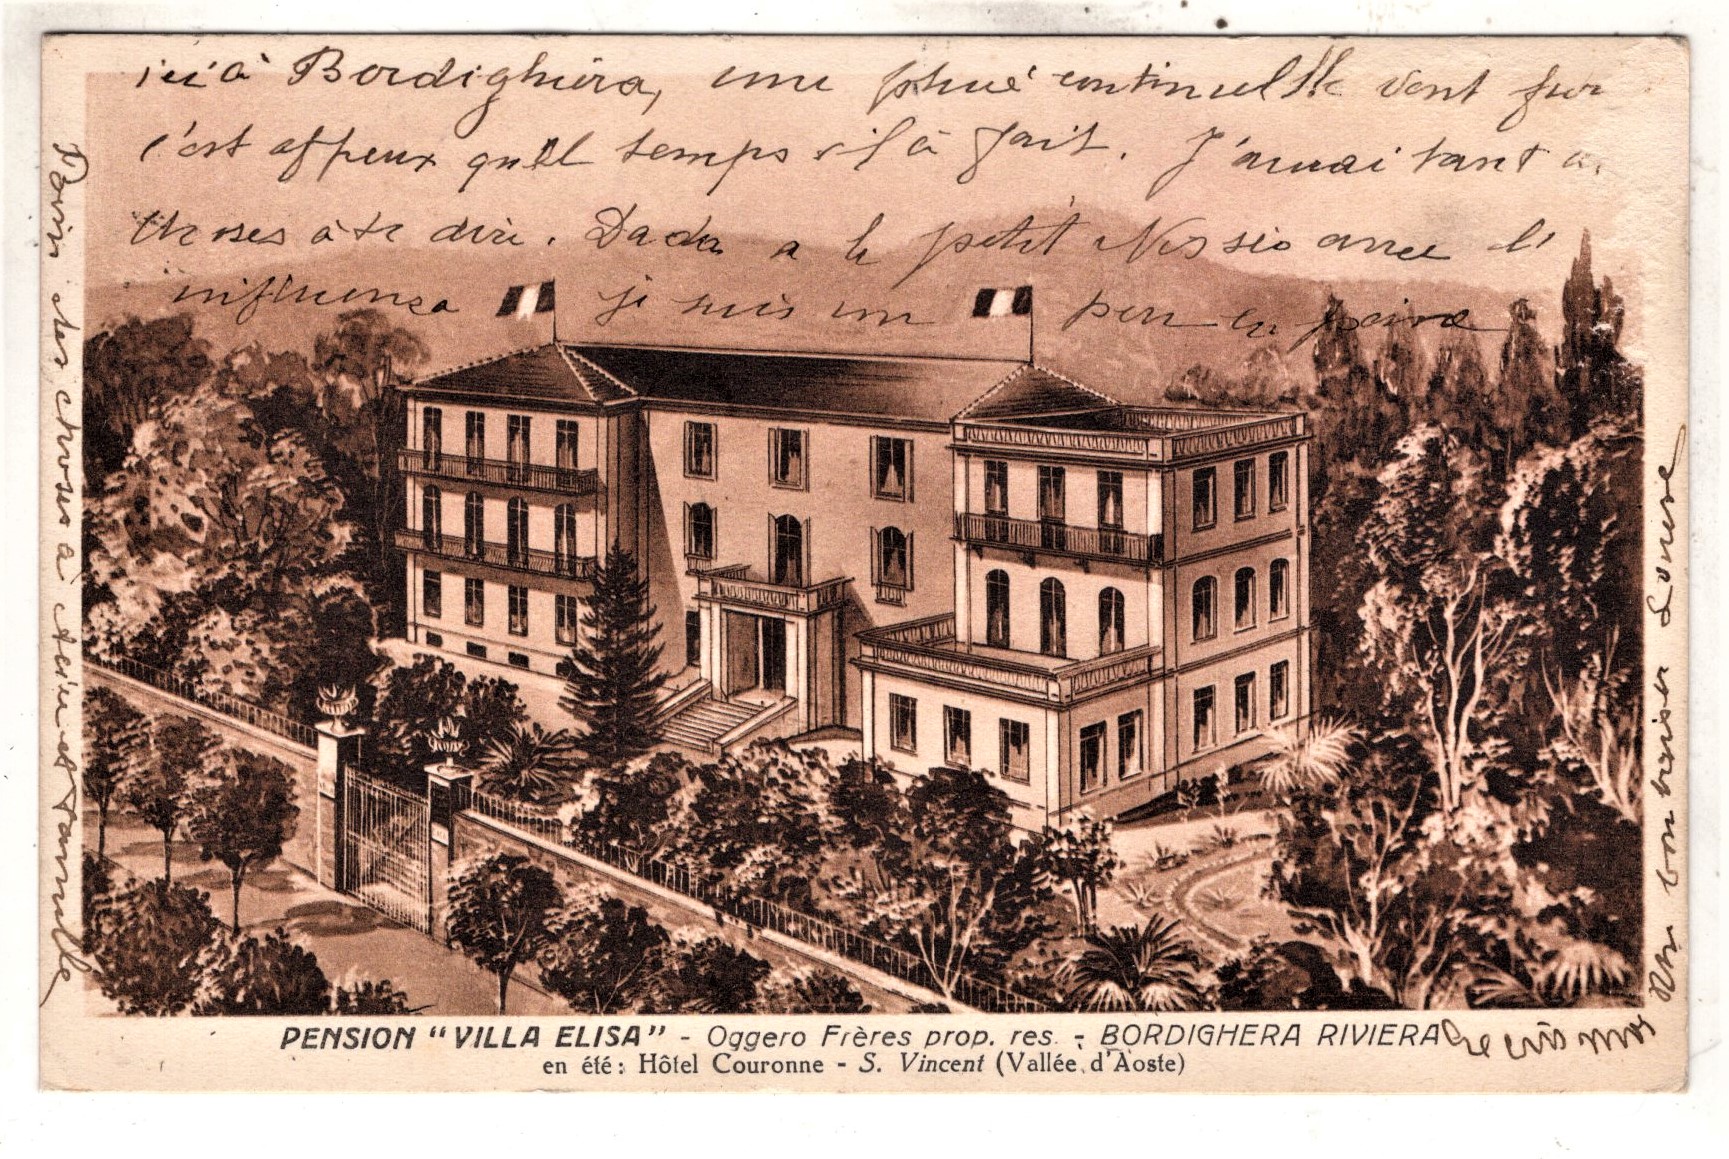 ici à Bordighera, une pluie continuellle vent fur
c'est affreux qu'll temps il à fait. J'aurai tant
choses à te dire. Dada a le petit Nessio avec l'
influenza je suis un peu en peine
Bien des choses à téeus famille
Un bon baiser Louise
Ecris moi
PENSION "VILLA ELISA" - Oggero Frères prop. res. - BORDIGHERA RIVIERA
en été: Hôtel Couronne - S. Vincent (Vallée d'Aoste)